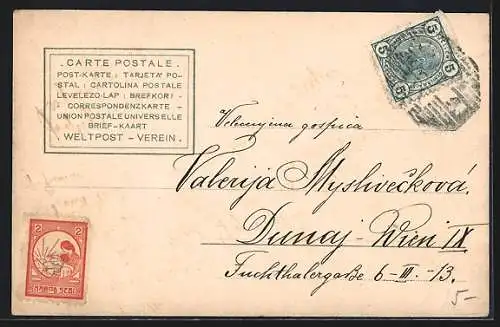 CARTE POSTALE.
POST-KARTE : TARJETA PO-
STAL : CARTOLINA POSTALE
LEVELEZO-LAP : BREFKORT
CORRESPONDENZKARTE
UNION POSTALE UNIVERSELLE
BRIEF-KAART
WELTPOST – VEREIN.
5 5
5 5
Velecijena gospica
Valerija Myslivečková.
Dunaj – Wien IX
Fuchthalergaße 6-III.-13.
2 2
5-